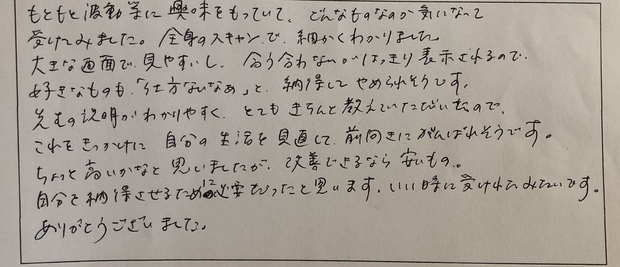 もともと波動学に興味をもっていて、どんなものなのか気になって
受けてみました。全身のスキャンで、細かくわかりました。
大きな画面で見やすいし、合う合わないがはっきり表示されるので、
好きなものも「仕方ないなぁ」と、納得してやめられそうです。
先生の説明がわかりやすく、とてもきちんと教えていただいたので、
これをきっかけに自分の生活を見直して、前向きにがんばれそうです。
ちょっと高いかなと思いましたが、改善できるなら安いもの。
自分を納得させるために必要だったと思います。いい時に受けれたみたいです。
ありがとうございました。